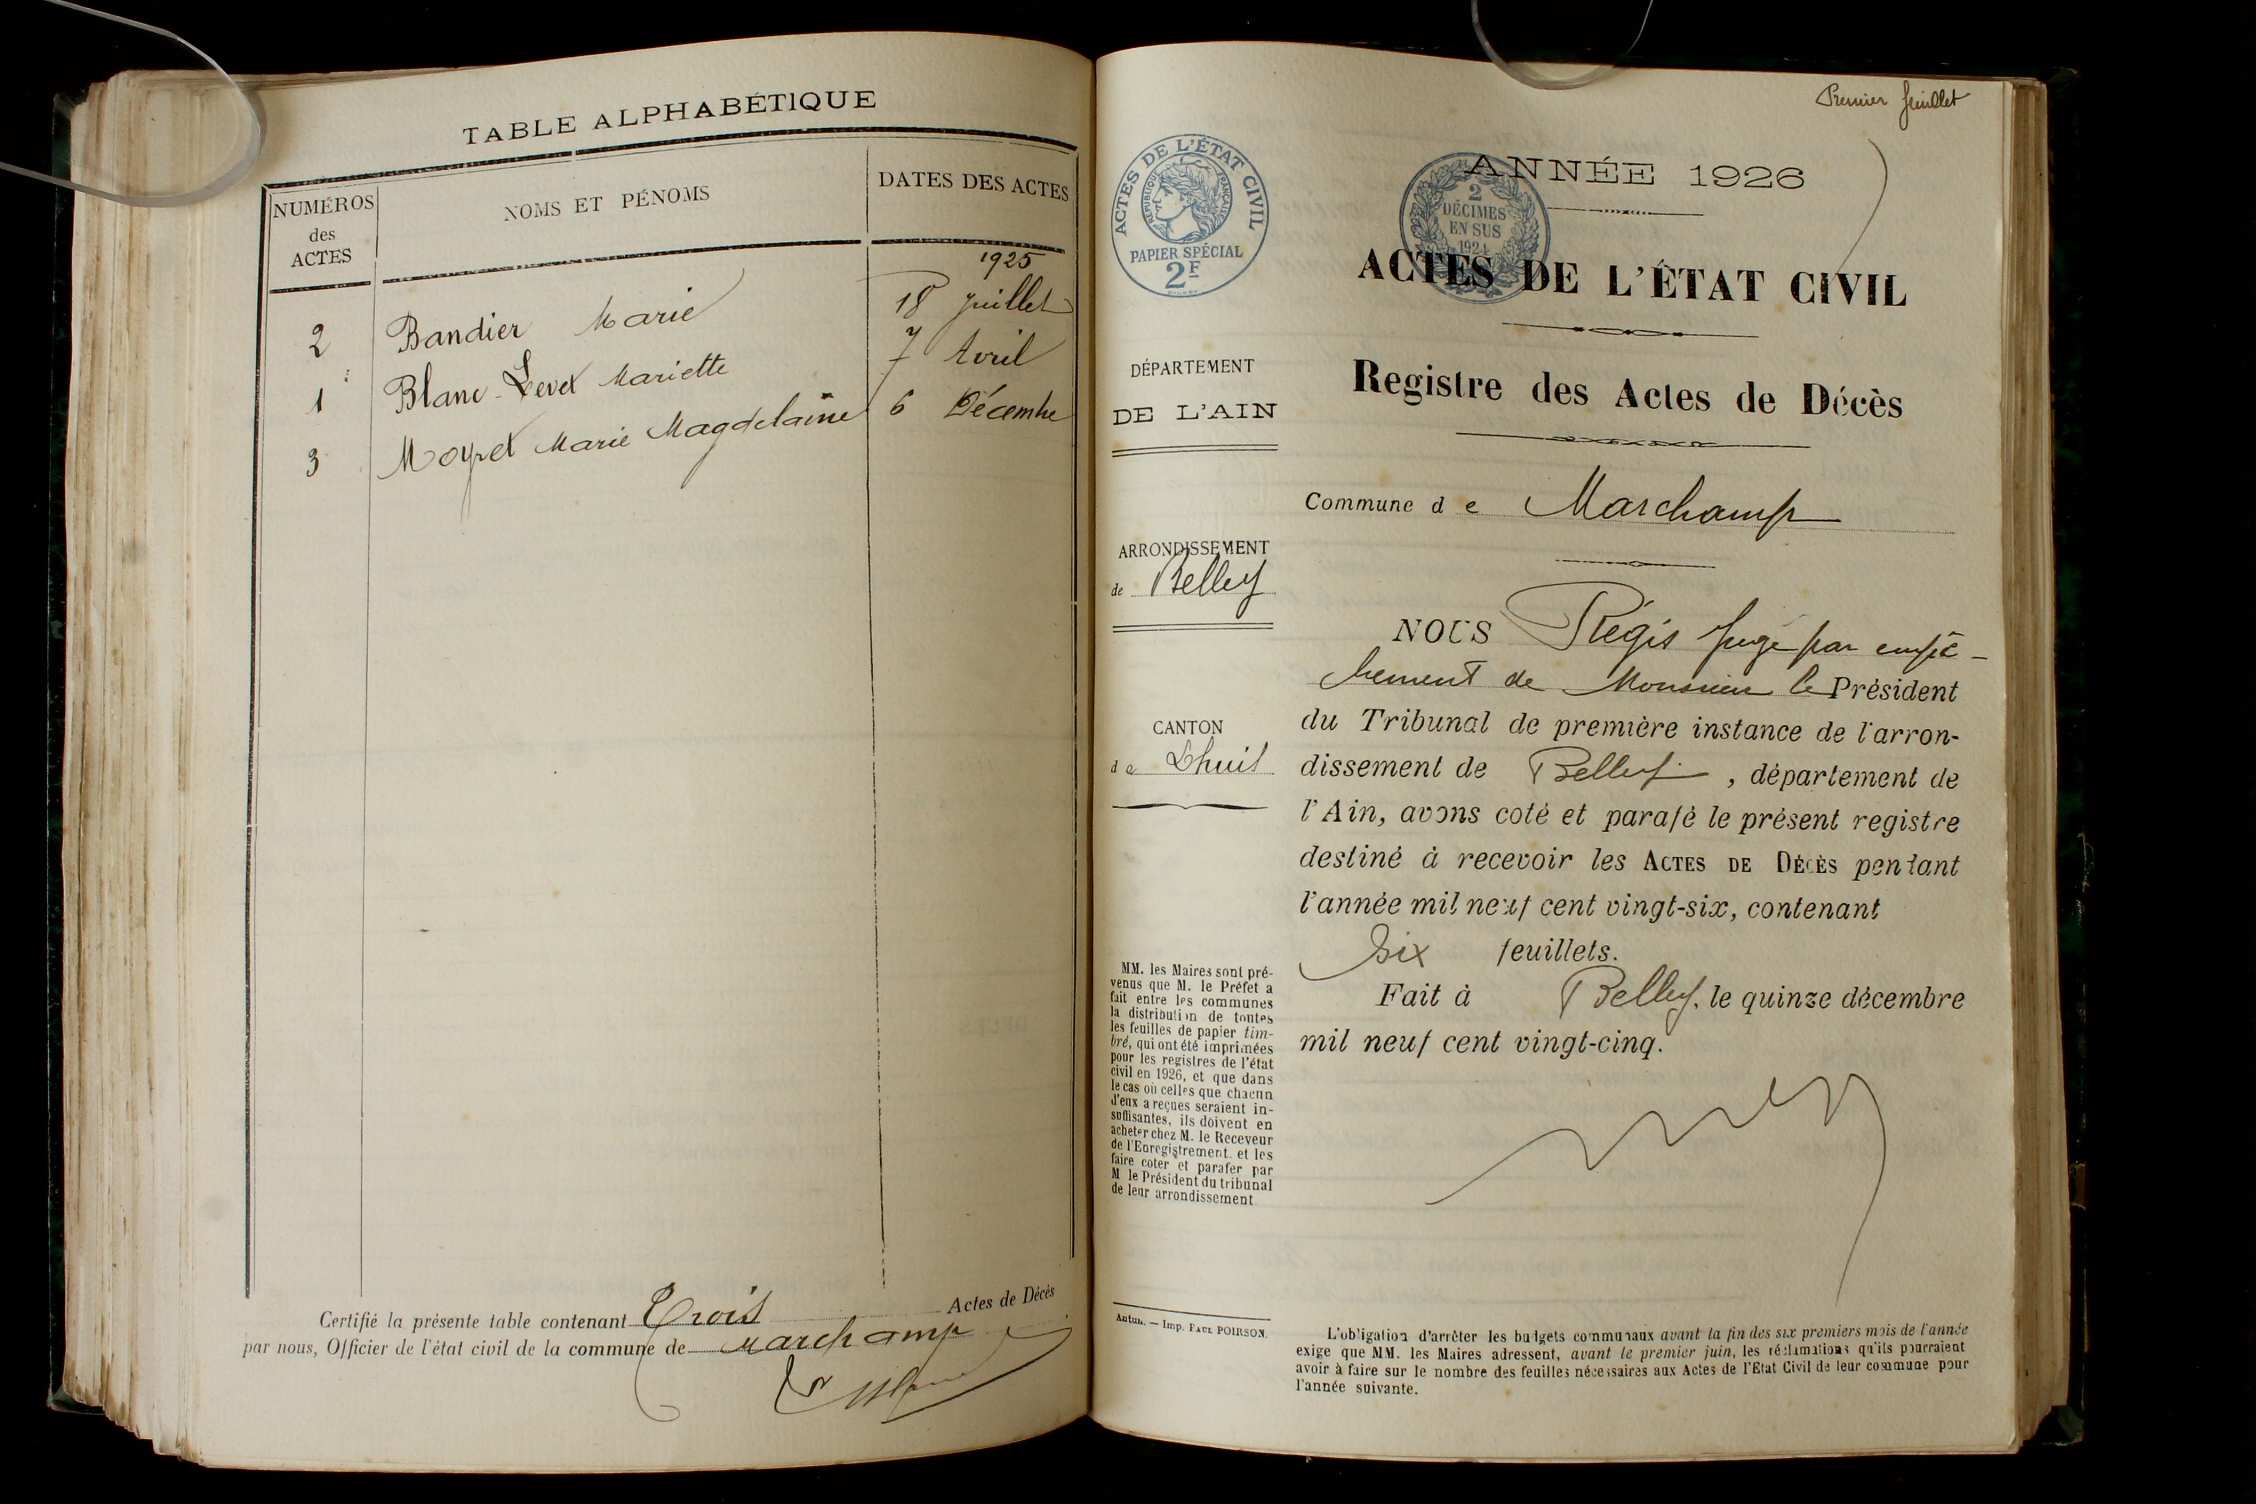 TABLE ALPHABÉTIQUE
NUMÉROS
des
ACTES
NOMS ET PÉNOMS
DATES DES ACTES
1925
2 Bandier Marie 18 Juillet
1 Blanc-Levet Mariette 7 Avril
3 Moyret Marie Magdelaine 6 Décembre
Certifié la présente table contenant Trois Actes de Décès
par nous, Officier de l'état civil de la commune de Marchamp
Premier feuillet
ACTES DE L'ÉTAT CIVIL
RÉPUBLIQUE FRANÇAISE
PAPIER SPÉCIAL
2F
2
DÉCIMES
EN SUS
1924
DÉPARTEMENT
DE L'AIN
ARRONDISSEMENT
de Belley
CANTON
de Lhuis
MM. les Maires sont pré-
venus que M. le Préfet a
fait entre les communes
la distribution de toutes
les feuilles de papier tim-
bré, qui ont été imprimées
pour les registres de l'état
civil en 1926, et que dans
le cas où celles que chacun
d'eux a reçues seraient in-
suffisantes, ils doivent en
acheter chez M. le Receveur
de l'Enregistrement et les
faire coter et parafer par
M le Président du tribunal
de leur arrondissement
Autun. — Imp. PAUL POIRSON.
ANNÉE 1926
ACTES DE L'ÉTAT CIVIL
Registre des Actes de Décès
Commune de Marchamp
NOUS Régis Juge par empê-
chement de Monsieur le Président
du Tribunal de première instance de l'arron-
dissement de Belley, département de
l'Ain, avons coté et parafé le présent registre
destiné à recevoir les ACTES DE DÉCÈS pendant
l'année mil neuf cent vingt-six, contenant
Six feuillets.
Fait à Belley, le quinze décembre
mil neuf cent vingt-cinq.
L'obligation d'arrêter les budgets communaux avant la fin des six premiers mois de l'année
exige que MM. les Maires adressent, avant le premier juin, les réclamations qu'ils pourraient
avoir à faire sur le nombre des feuilles nécessaires aux Actes de l'Etat Civil de leur commune pour
l'année suivante.